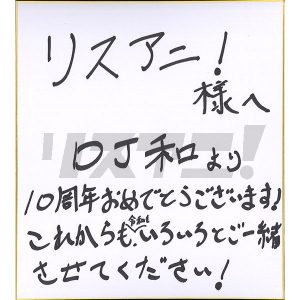 リスアニ！
様へ
リスアニ！
DJ和より
10周年おめでとうございます！
これからも、いろいろとご一緒
させてください！